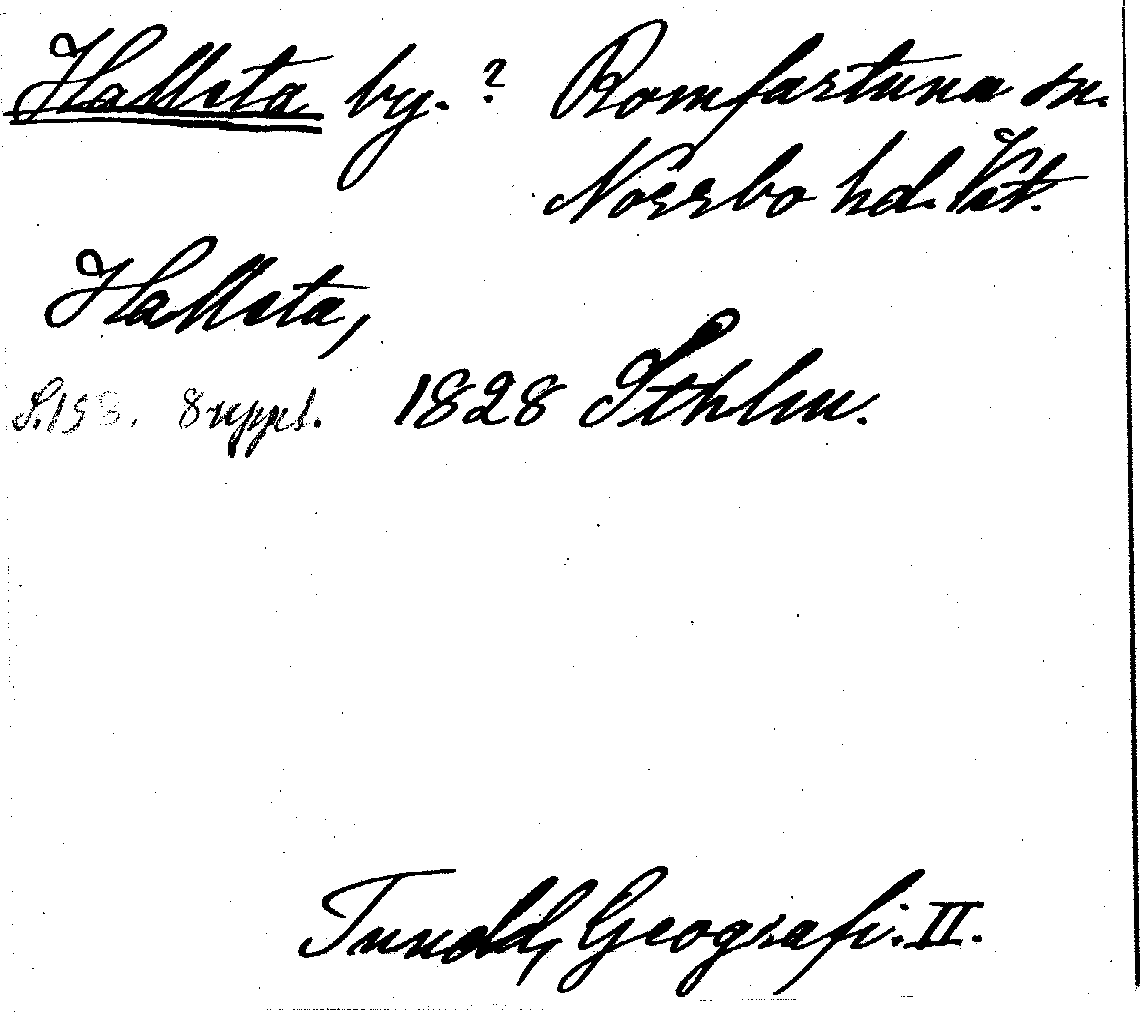 Hallsta by. ? Romfartuna sn.
Norrbo hd. Vst.
Hallsta,
S. 193. Suppl. 1828 Sthlm.
Tuneld, Geografi. II.